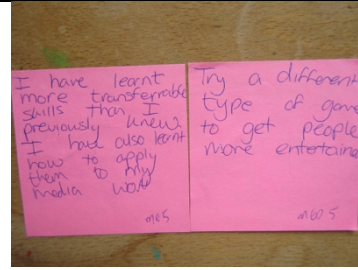 I have learnt
more transferrable
skills than I
previously knew
I have also learnt
how to apply
them to my
media work
Try a different
type of game
to get people
more entertaine